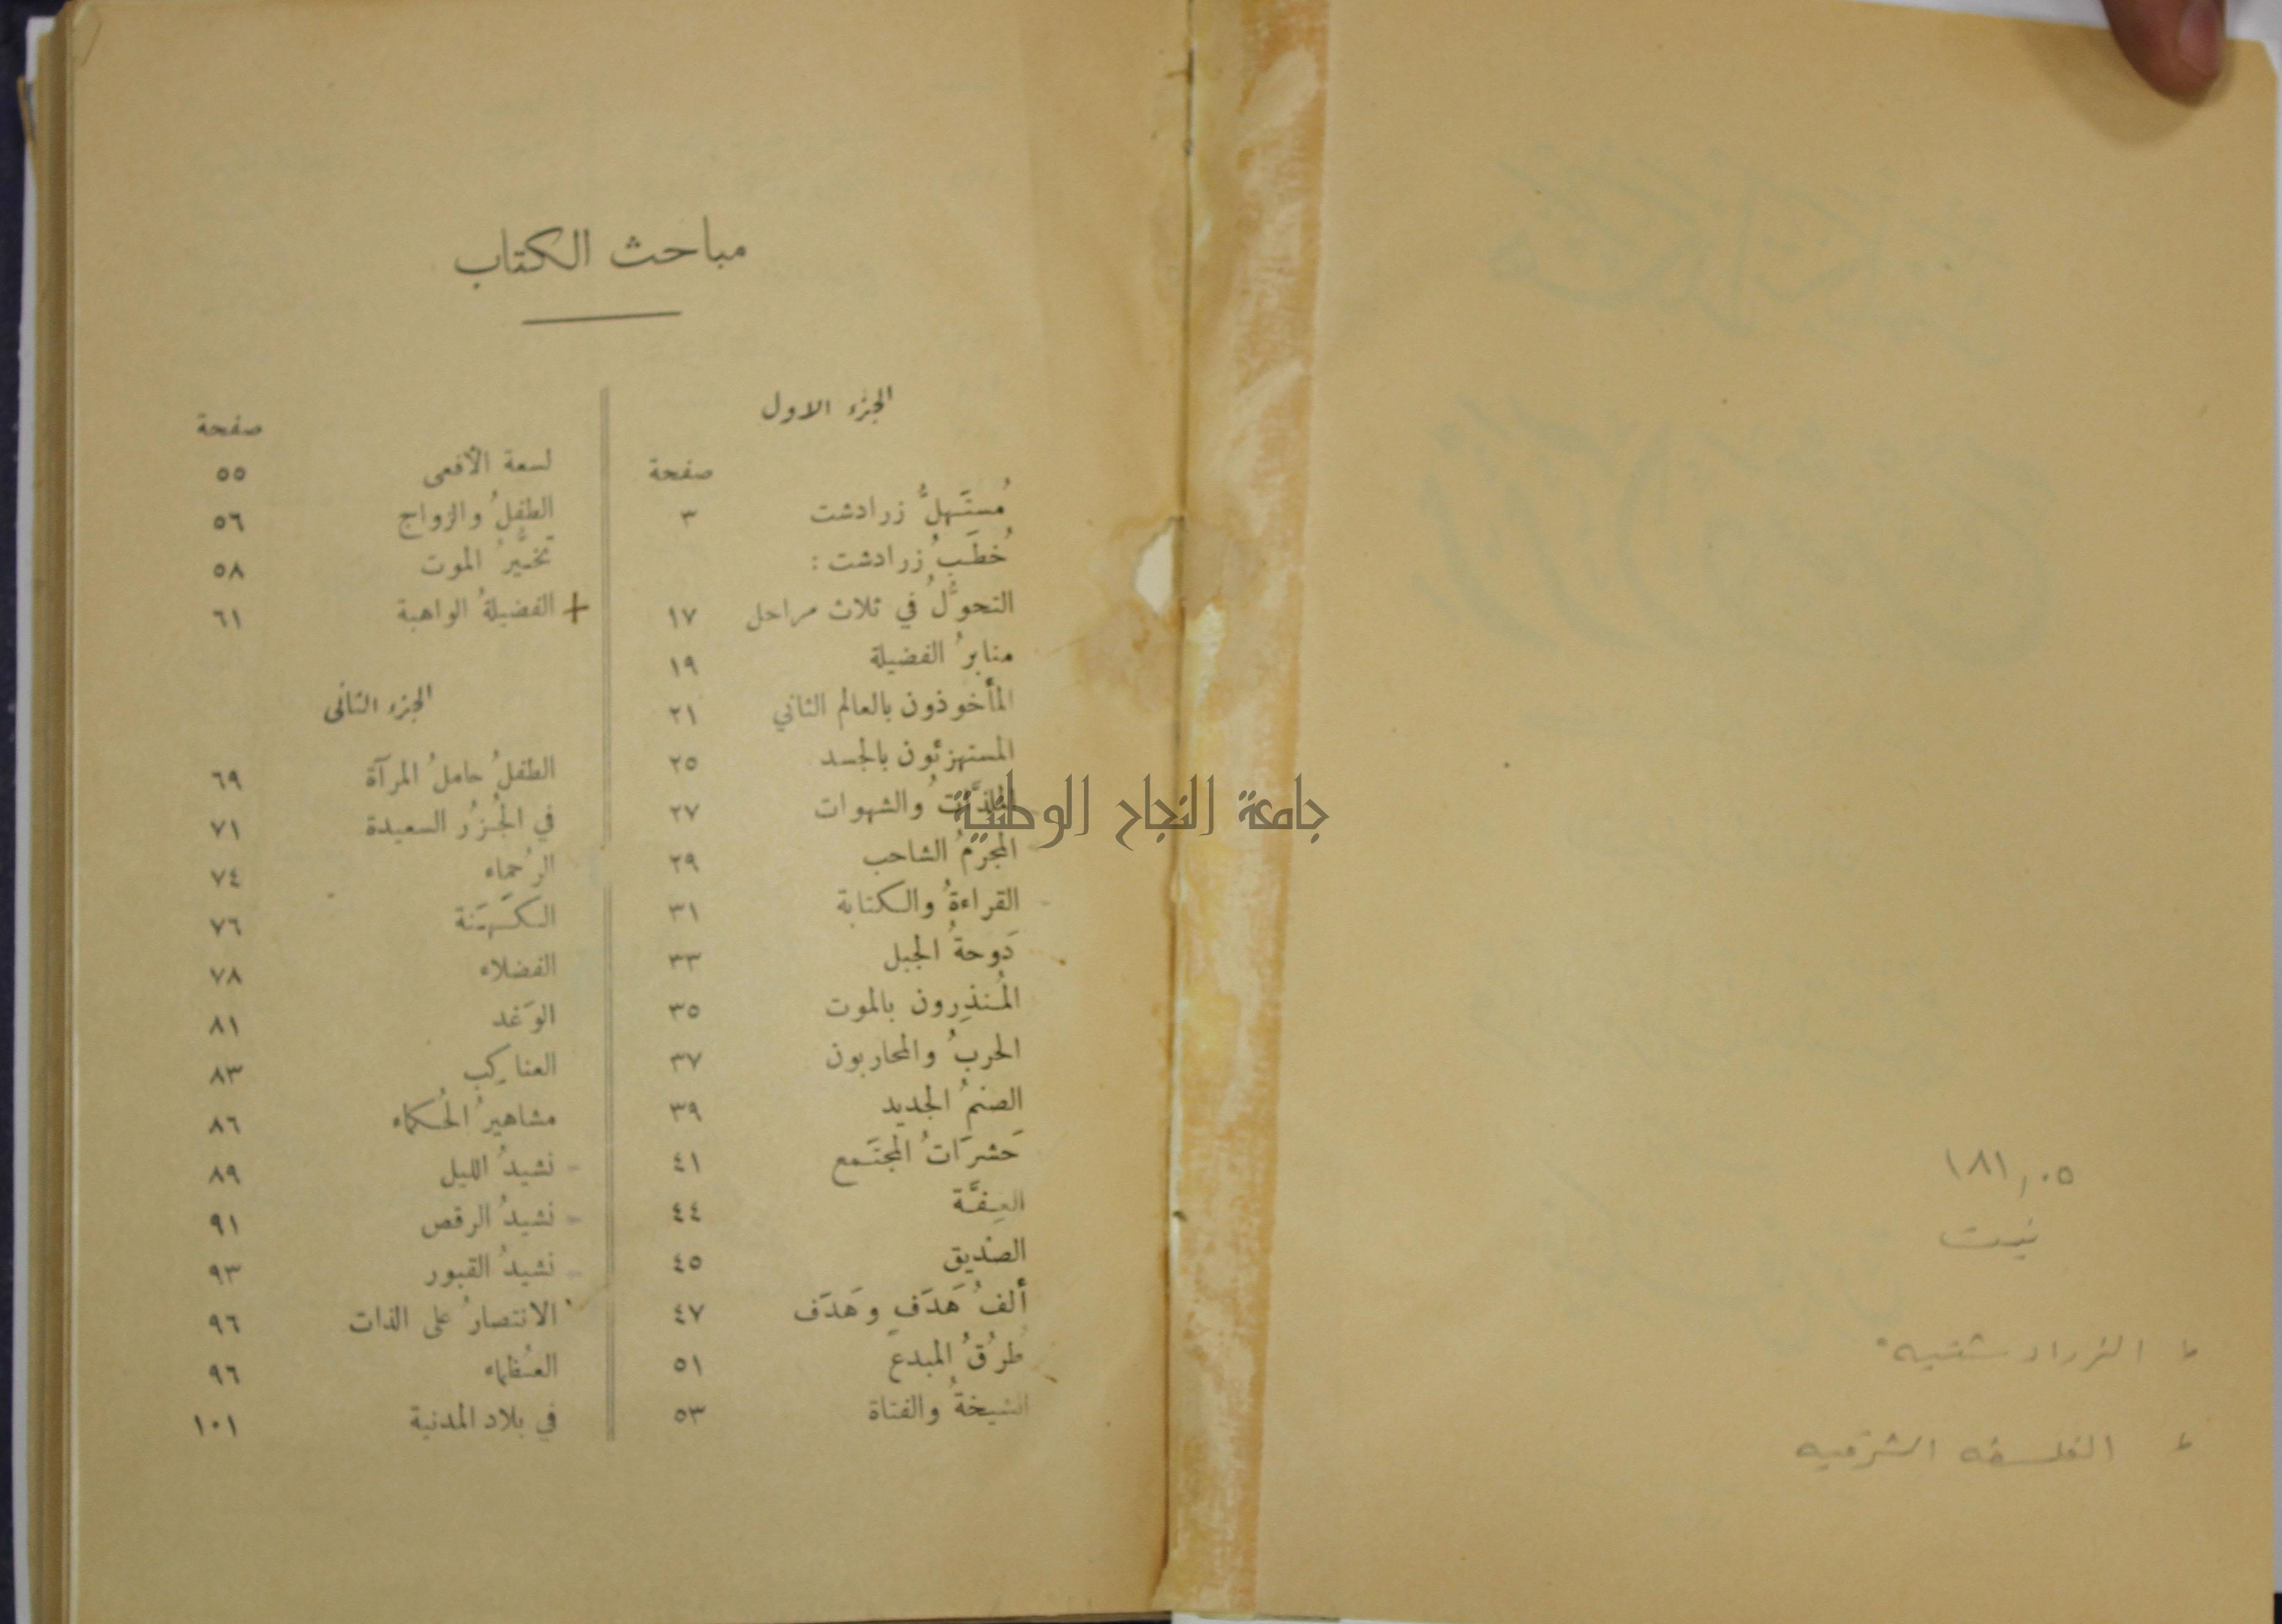 ١٨١,٠٥
نيت
ط الزرادشتيه
ط الفلسفه الشرقيه
جامعة النجاح الوطنية
مباحث الكتاب
الجزء الاول
صفحة
مُستَهلُّ زرادشت ٣
خُطَبُ زرادشت :
التحوُّلُ في ثلاث مراحل ١٧
منابرُ الفضيلة ١٩
المأخوذون بالعالم الثاني ٢١
المستهزئون بالجسد ٢٥
الملذَّاتُ والشهوات ٢٧
المجرمُ الشاحب ٢٩
القراءةُ والكتابة ٣١
دَوحةُ الجبل ٣٣
المُنذِرون بالموت ٣٥
الحربُ والمحاربون ٣٧
الصنمُ الجديد ٣٩
حَشرَاتُ المجتَمع ٤١
العِفَّة ٤٤
الصَديق ٤٥
ألفُ هَدَفٍ وهَدَف ٤٧
طرُقُ المبدع ٥١
الشيخةُ والفتاة ٥٣
صفحة
لسعة الأفعى ٥٥
الطفلُ والزواج ٥٦
تخيُّرُ الموت ٥٨
+ الفضيلةُ الواهبة ٦١
الجزء الثاني
الطفلُ حاملُ المرآة ٦٩
في الجُزُر السعيدة ٧١
الرُحماء ٧٤
الكَهَنة ٧٦
الفضلاء ٧٨
الوَغد ٨١
العناكب ٨٣
مشاهيرُ الحُكماء ٨٦
نشيدُ الليل ٨٩
نشيدُ الرقص ٩١
نشيدُ القبور ٩٣
الانتصارُ على الذات ٩٦
العُظماء ٩٦
في بلاد المدنية ١٠١